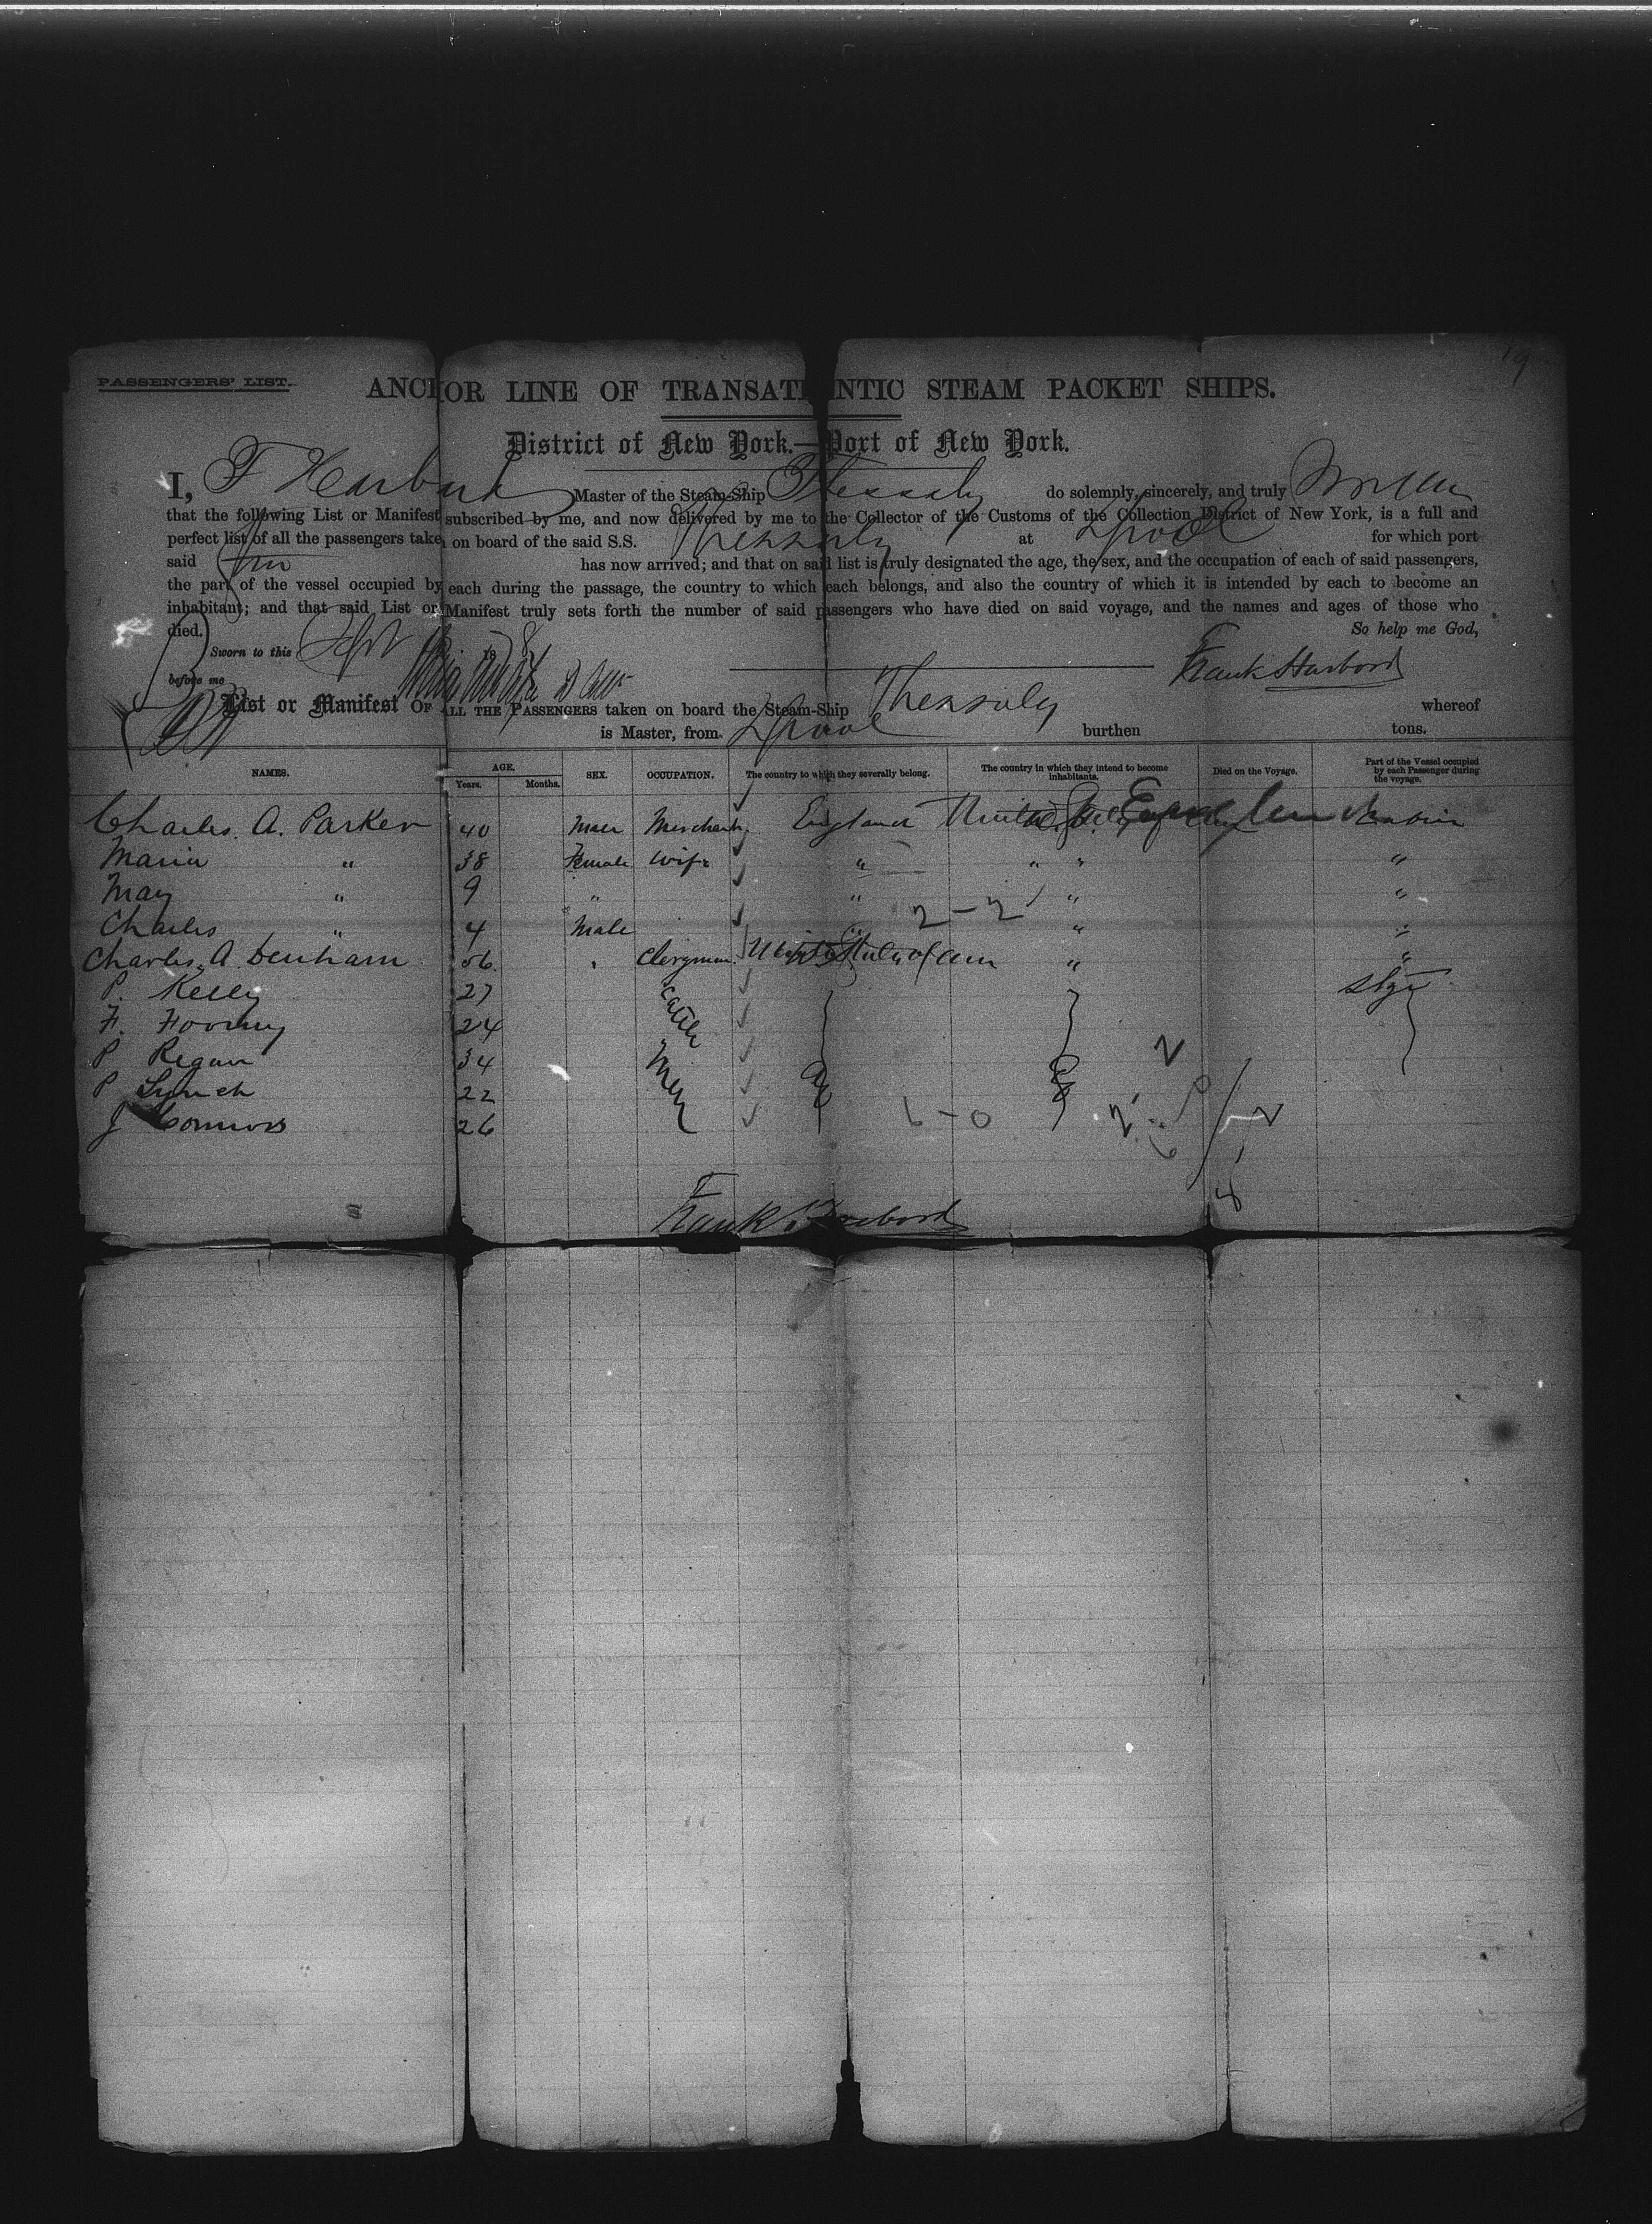 19
PASSENGERS' LIST.
ANCHOR LINE OF TRANSATLANTIC STEAM PACKET SHIPS.
District of New York.—Port of New York.
I, F Harbord Master of the Steam-Ship Thessaly do solemnly, sincerely, and truly
that the following List or Manifest subscribed by me, and now delivered by me to the Collector of the Customs of the Collection District of New York, is a full and
perfect list of all the passengers taken on board of the said S.S. Thessaly at Lpool for which port
said has now arrived; and that on said list is truly designated the age, the sex, and the occupation of each of said passengers,
the part of the vessel occupied by each during the passage, the country to which each belongs, and also the country of which it is intended by each to become an
inhabitant; and that said List or Manifest truly sets forth the number of said passengers who have died on said voyage, and the names and ages of those who
died. So help me God,
Sworn to this Sept 18
Frank Harbord
before me
List or Manifest OF ALL THE PASSENGERS taken on board the Steam-Ship Thessaly whereof
is Master, from Lpool burthen tons.
NAMES. AGE. Years. Months. SEX. OCCUPATION. The country to which they severally belong. The country in which they intend to become inhabitants. Died on the Voyage. Part of the Vessel occupied by each Passenger during the voyage.
Charles. A. Parker 40 Male Merchant England Cabin
Maria " 38 Female Wife " " " "
May " 9 " " " "
Charles " 4 Male " " "
Charles. A. Denham 56. Clergyman. United States of Am " "
P. Kelly 27 Cattle Men Stge
F. 24
P Regan 34
P Lynch 22
J Connors 26
2-2
6-0
Frank Harbord